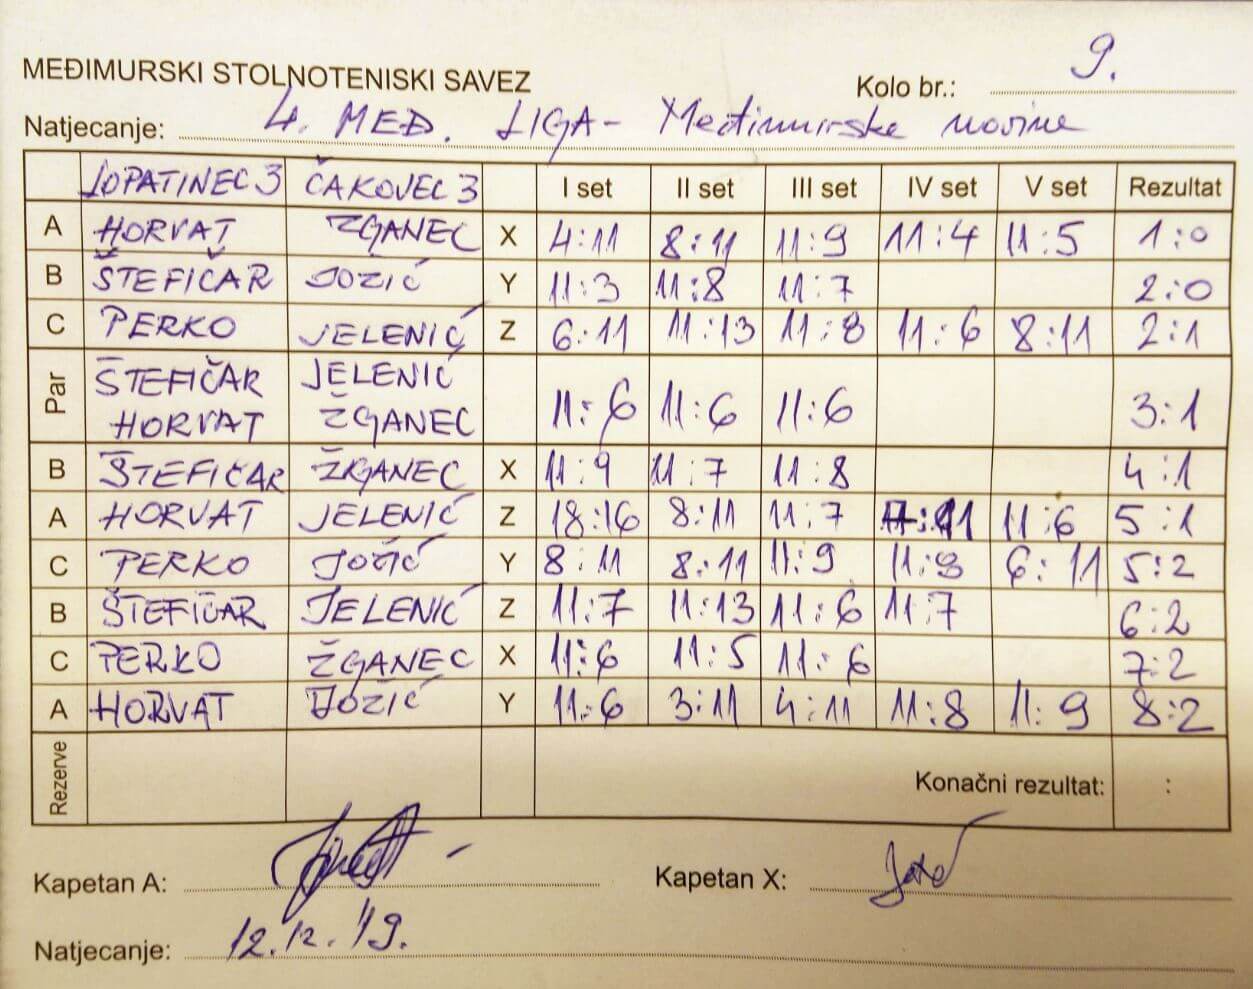 MEĐIMURSKI STOLNOTENISKI SAVEZ
Kolo br.: 9.
Natjecanje: 4. MEĐ. LIGA - Međimurske novine
LOPATINEC 3 ČAKOVEC 3 I set II set III set IV set V set Rezultat
A HORVAT ŽGANEC X 4:11 8:11 11:9 11:4 11:5 1:0
B ŠTEFIČAR JOZIĆ Y 11:3 11:8 11:7 2:0
C PERKO JELENIĆ Z 6:11 11:13 11:8 11:6 8:11 2:1
Par ŠTEFIČAR JELENIĆ
HORVAT ŽGANEC 11:6 11:6 11:6 3:1
B ŠTEFIČAR ŽGANEC X 11:9 11:7 11:8 4:1
A HORVAT JELENIĆ Z 18:16 8:11 11:7 7:11 11:6 5:1
C PERKO JOŽIĆ Y 8:11 8:11 11:9 11:8 6:11 5:2
B ŠTEFIČAR JELENIĆ Z 11:7 11:13 11:6 11:7 6:2
C PERKO ŽGANEC X 11:6 11:5 11:6 7:2
A HORVAT JOŽIĆ Y 11:6 3:11 4:11 11:8 11:9 8:2
Rezerve Konačni rezultat: :
Kapetan A: Kapetan X:
Natjecanje: 12.12.'19.